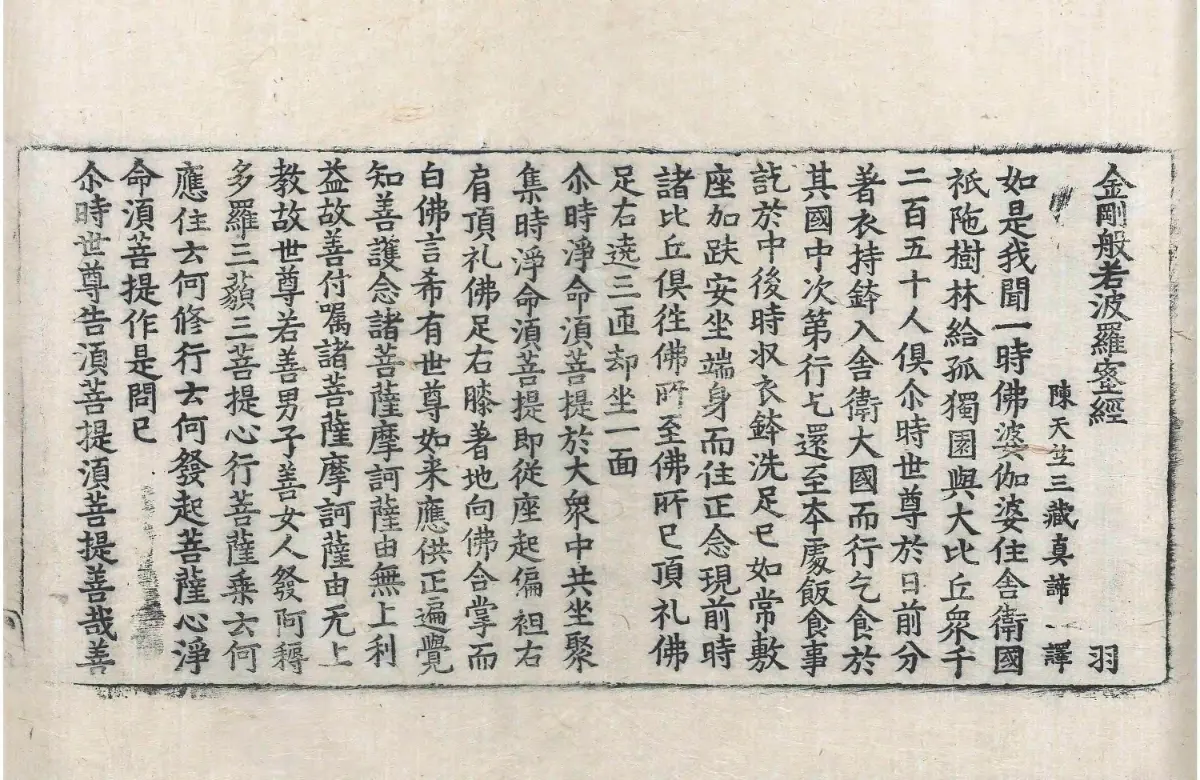 金剛般若波羅蜜經 羽
陳天竺三藏真諦 譯
如是我聞一時佛婆伽婆住舍衛國
祇陁樹林給孤獨園與大比丘衆千
二百五十人俱尒時世尊於日前分
著衣持鉢入舍衛大國而行乞食於
其國中次第行乞還至本處飯食事
訖於中後時収衣鉢洗足已如常敷
座加趺安坐端身而住正念現前時
諸比丘俱徃佛所至佛所已頂礼佛
足右遶三匝却坐一面
尒時淨命湏菩提於大衆中共坐聚
集時淨命湏菩提即從座起偏袒右
肩頂礼佛足右膝著地向佛合掌而
白佛言希有世尊如来應供正遍覺
知善護念諸菩薩摩訶薩由無上利
益故善付嘱諸菩薩摩訶薩由无上
教故世尊若善男子善女人發阿耨
多羅三藐三菩提心行菩薩乘云何
應住云何修行云何發起菩薩心淨
命湏菩提作是問已
尒時世尊告湏菩提湏菩提善哉善